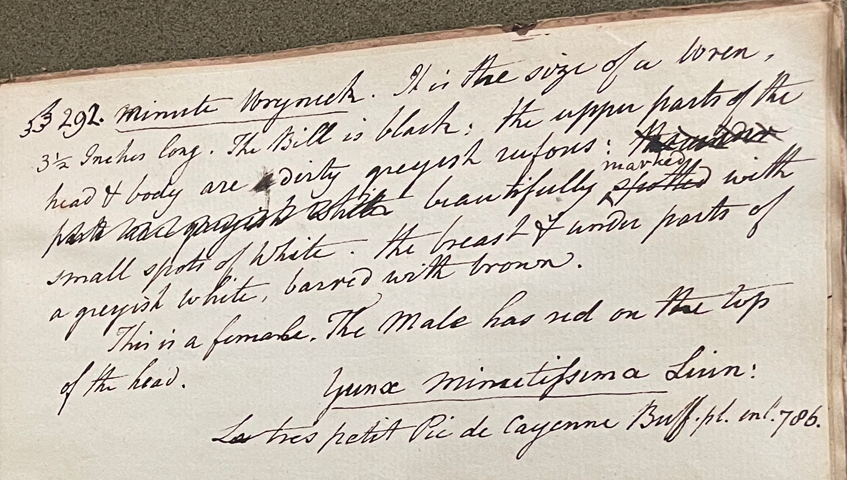 292. Minute Wryneck. It is the size of a Wren,
3½ Inches long. The Bill is black: the upper parts of the
head & body are dirty greyish rufous: the under
marked
parts are greyish white beautifully spotted with
small spots of White. the breast & under parts of
a greyish white, barred with brown.
This is a female. The Male has red on the top
of the head.
Yunx Minutissima Linn:
Le tres petit Pic de Cayenne Buff. pl. enl. 786.